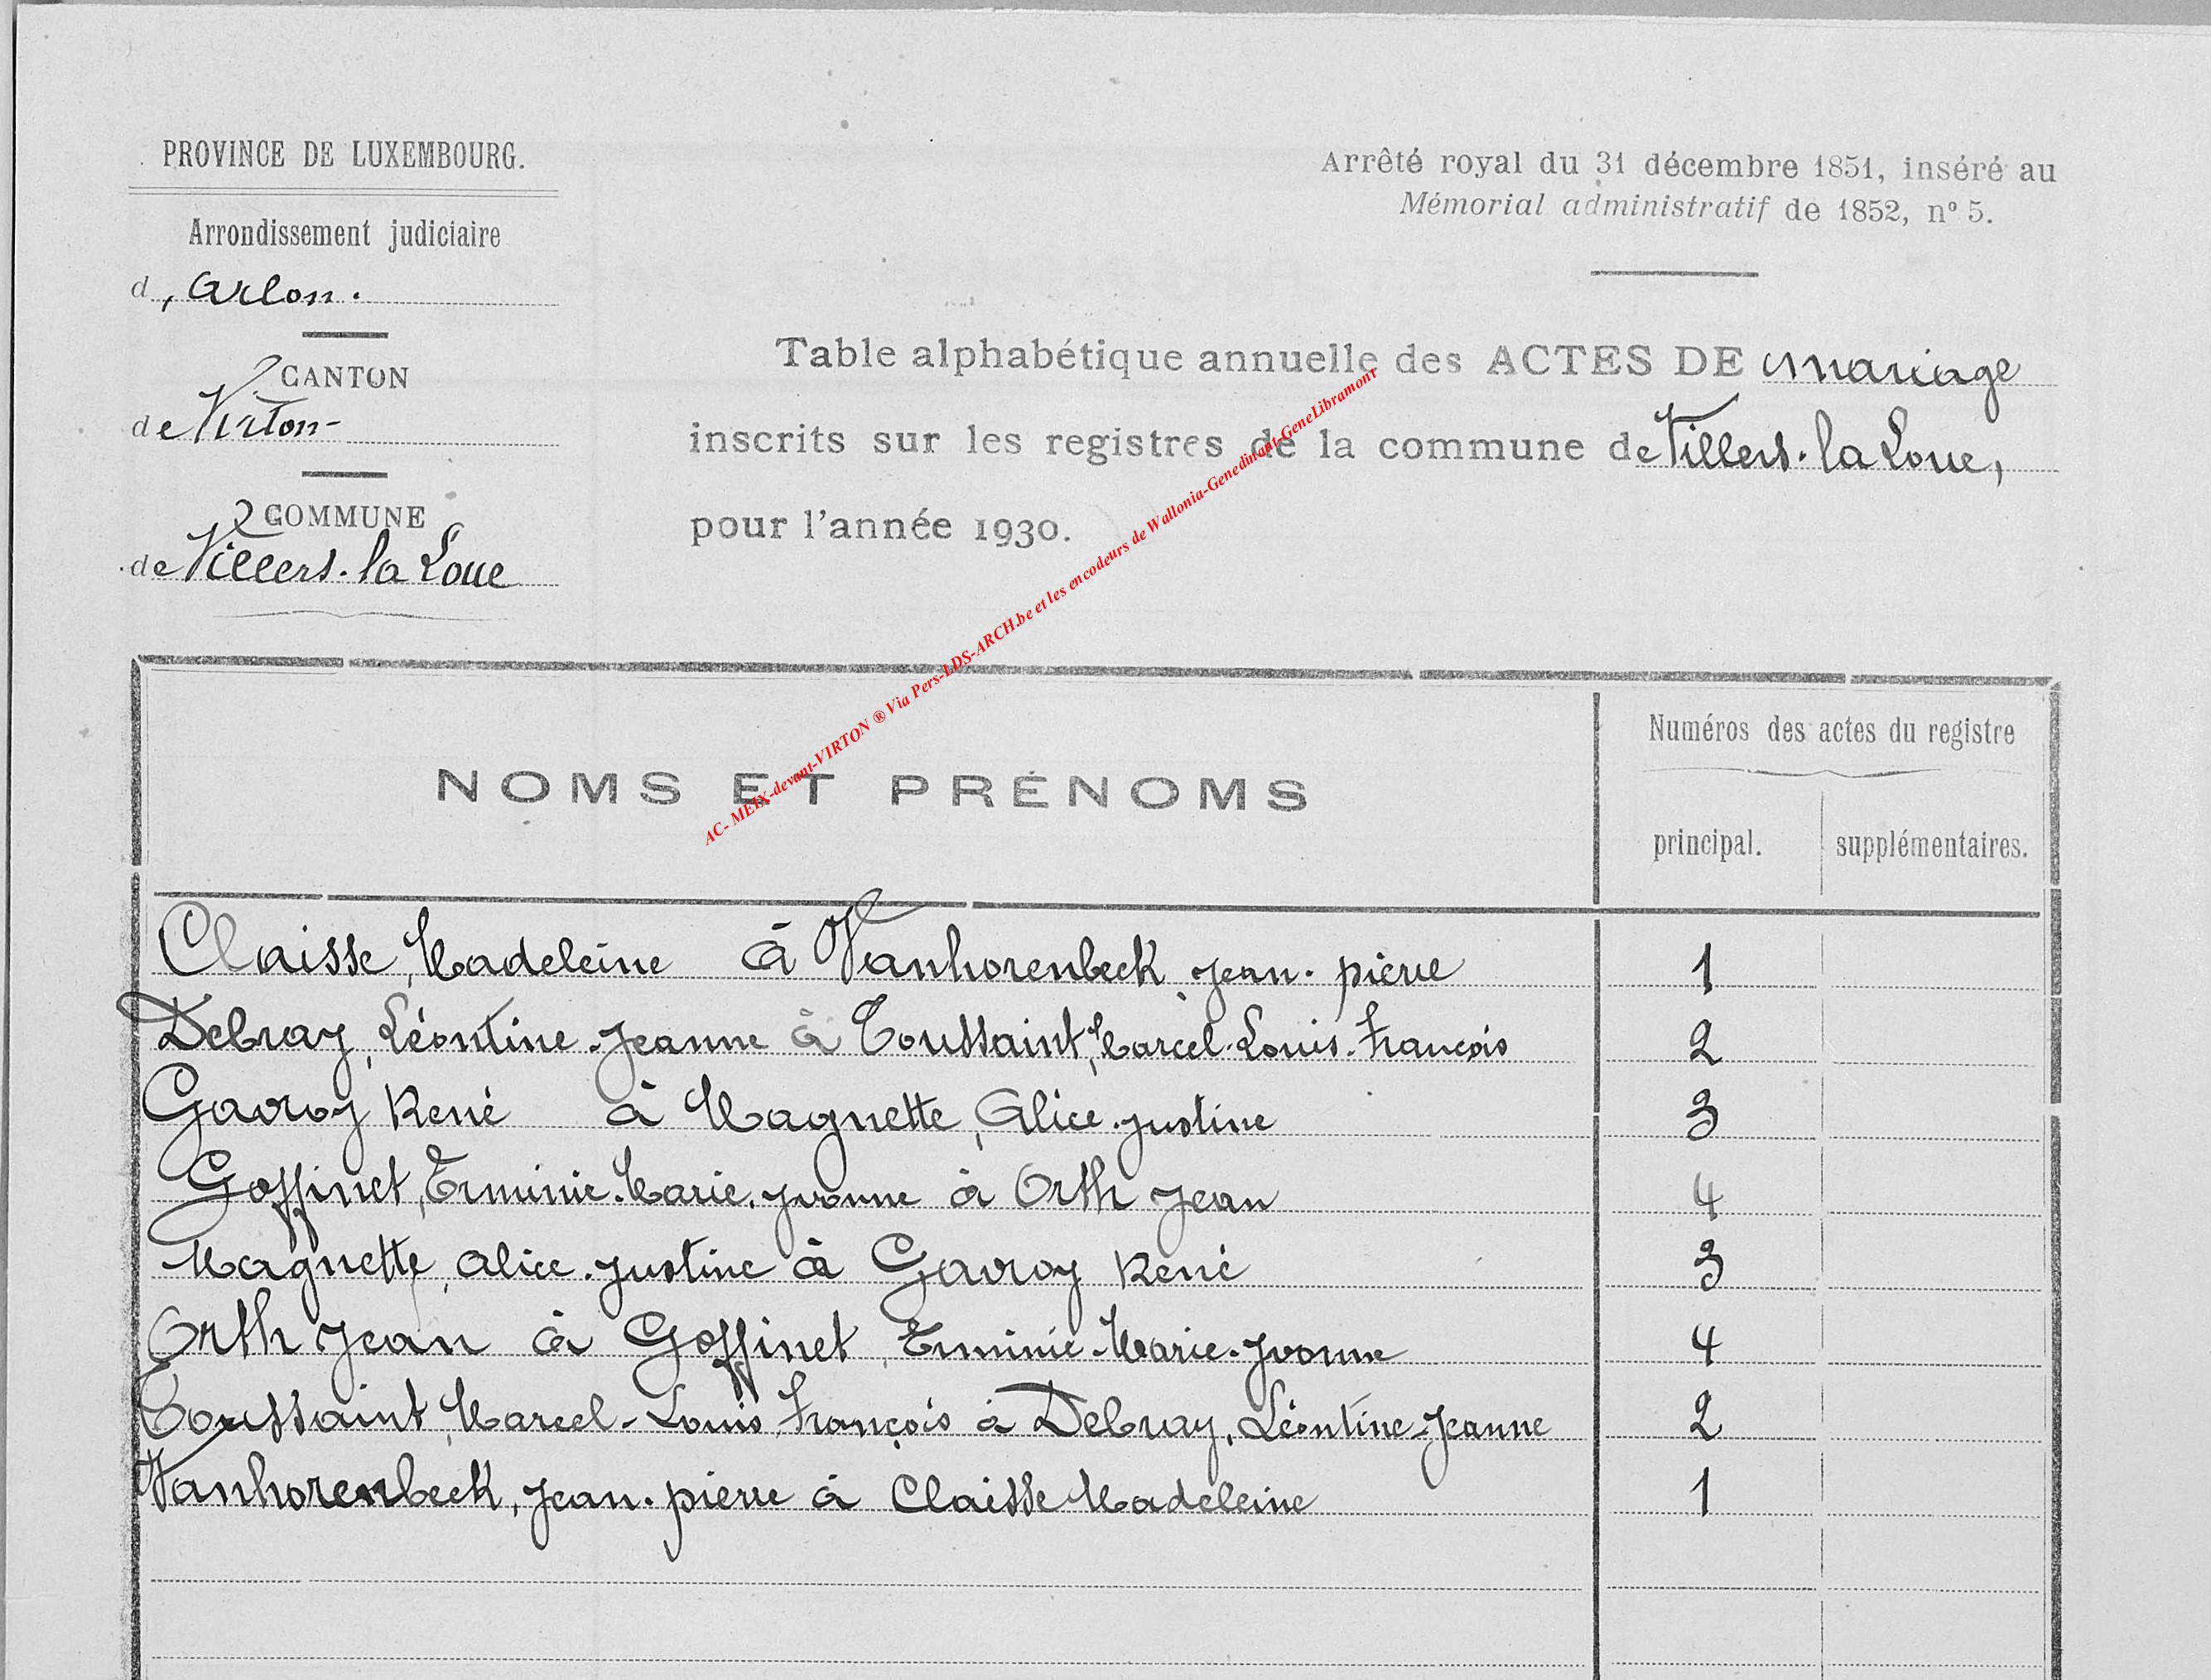 PROVINCE DE LUXEMBOURG.
Arrondissement judiciaire
d, Arlon.
CANTON
de Virton-
COMMUNE
de Villers-la Loue
Arrêté royal du 31 décembre 1851, inséré au
Mémorial administratif de 1852, n° 5.
Table alphabétique annuelle des ACTES DE mariage
inscrits sur les registres de la commune de Villers-la Loue,
pour l'année 1930.
AC- MEIX-devant-VIRTON ® Via Pers-LDS-ARCH.be et les encodeurs de Wallonia-Genedinant-GeneLibramont
NOMS ET PRÉNOMS
Numéros des actes du registre
principal. supplémentaires.
Claisse, Madeleine à Vanhorenbeck Jean-pierre 1
Debray, Léontine-Jeanne à Toussaint, Marcel-Louis-François 2
Gavroy René à Magnette, Alice-Justine 3
Goffinet, Erminie-Marie-Yvonne à Orth Jean 4
Magnette, Alice-Justine à Gavroy René 3
Orth Jean à Goffinet, Erminie-Marie-Yvonne 4
Toussaint, Marcel-Louis François à Debray, Léontine-Jeanne 2
Vanhorenbeck, Jean-pierre à Claisse Madeleine 1